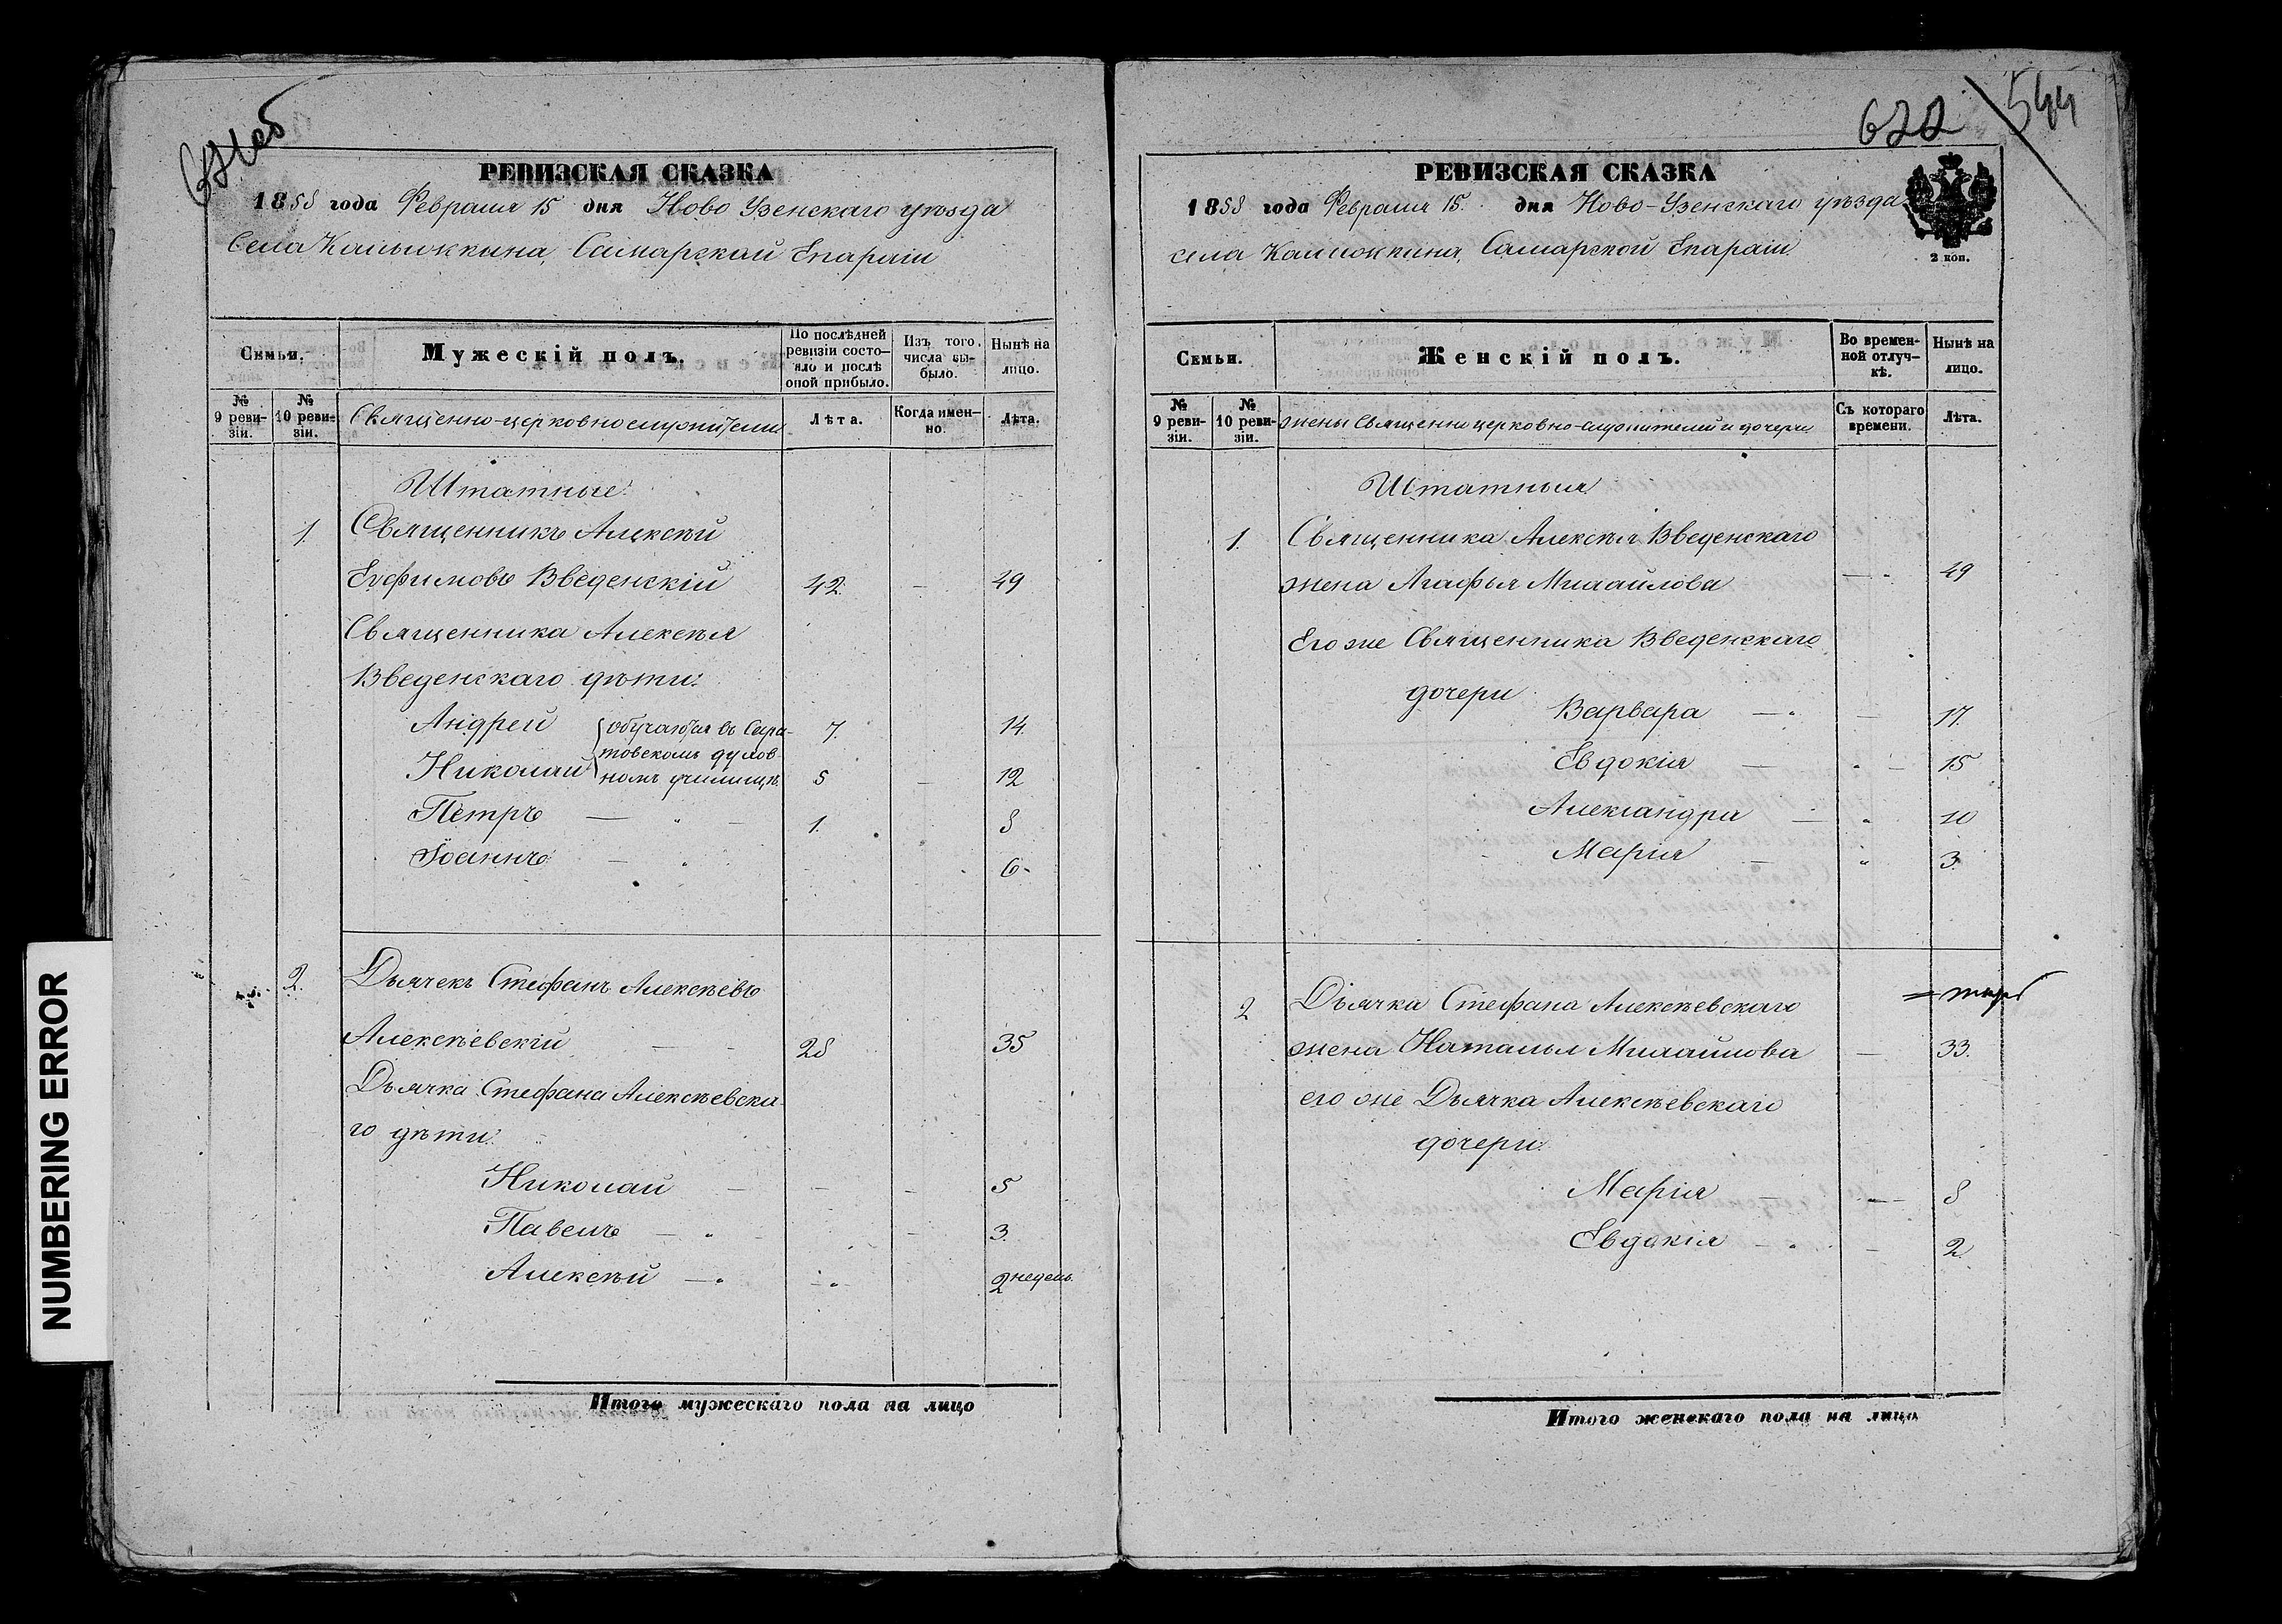 NUMBERING ERROR
РЕВИЗСКАЯ СКАЗКА
1858 года Февраля 15 дня Ново Узенскаго уѣзда
Села Самарской Епархіи
Семьи.
Мужескій полъ.
По послѣдней ревизіи состояло и послѣ оной прибыло.
Изъ того числа выбыло.
Нынѣ на лицо.
№ 9 ревизіи.
№ 10 ревизіи.
Священно-церковнослужители
Лѣта.
Когда именно.
Лѣта.
Штатные.
1. Священникъ Алексѣй
Евфимовъ Введенскій 42. — 49
Священника Алексѣя
Введенскаго дѣти:
Андрей { обучаются въ Сара- 7. 14.
товскомъ духов-
Николай номъ училищѣ. 5 — 12
Петръ — " — 1. 8
Іоаннъ — " 6.
2. Дьячекъ Стефанъ Алексѣевъ
Алексѣевскій — — 28 35
Дьячка Стефана Алексѣевска-
го дѣти:
Николай — — — 5
Павелъ — " — — 3.
Алексѣй — " — " 2 недель.
Итого мужескаго пола на лицо
622 544
РЕВИЗСКАЯ СКАЗКА
1858 года Февраля 15. дня Ново-Узенскаго уѣзда
села Самарской Епархіи.
2 коп.
Семьи.
Женскій полъ.
Во временной отлучкѣ.
Нынѣ на лицо.
№ 9 ревизіи.
№ 10 ревизіи.
жены Священно церковно-служителей и дочери
Съ котораго времени.
Лѣта.
Штатныя
1. Священника Алексѣя Введенскаго
жена Агафья Михайлова — " 49
Его же Священника Введенскаго
дочери
Варвара — " — 17.
Евдокія — " — 15
Александра — " 10
Марія — " 3.
2 Дьячка Стефана Алексѣевскаго
жена Наталья Михайлова — 33.
его же Дьячка Алексѣевскаго
дочери:
Марія — — 8
Евдокія — " — 2.
Итого женскаго пола на лицо